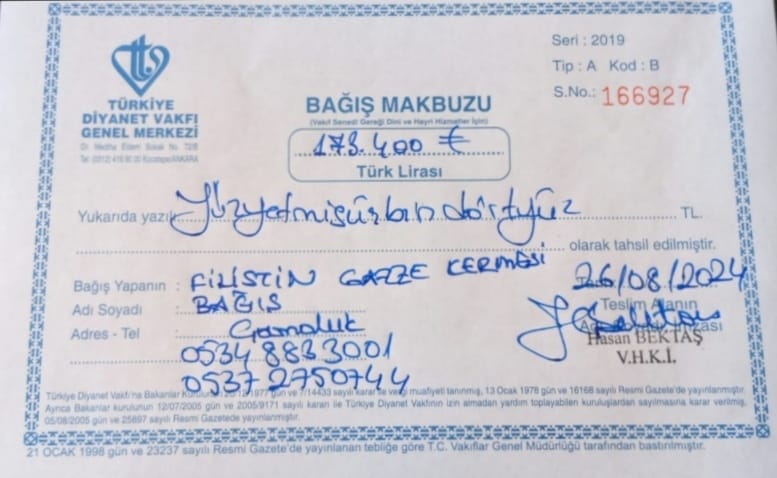 Seri : 2019
Tip : A Kod : B
S.No.: 166927
TÜRKİYE
DİYANET VAKFI
GENEL MERKEZİ
Dr. Mediha Eldem Sokak No. 72/B
Tel: (0312) 416 90 00 Kocatepe/ANKARA
BAĞIŞ MAKBUZU
(Vakıf Senedi Gereği Dini ve Hayri Hizmetler İçin)
173.400 €
Türk Lirası
Yukarıda yazılı Yüzyetmişüçbin dörtyüz TL.
olarak tahsil edilmiştir.
Bağış Yapanın : FİLİSTİN GAZZE KERMESİ
26/08/2024
Adı Soyadı : BAĞIŞ
Teslim Alanın
Adres - Tel
0534 8833001
Hasan BEKTAŞ
V.H.K.İ.
0537 2750744
Türkiye Diyanet Vakfı'na Bakanlar Kurulunun 20/12/1977 gün ve 7/14433 sayılı karar ile vergi muafiyeti tanınmış, 13 Ocak 1978 gün ve 16168 sayılı Resmi Gazete'de yayınlanmıştır.
Ayrıca Bakanlar kurulunun 12/07/2005 gün ve 2005/9171 sayılı kararı ile Türkiye Diyanet Vakfının izin almadan yardım toplayabilen kuruluşlardan sayılmasına karar verilmiş,
05/08/2005 gün ve 25897 sayılı Resmi Gazetede yayınlanmıştır.
21 OCAK 1998 gün ve 23237 sayılı Resmi Gazete'de yayınlanan tebliğe göre T.C. Vakıflar Genel Müdürlüğü tarafından bastırılmıştır.